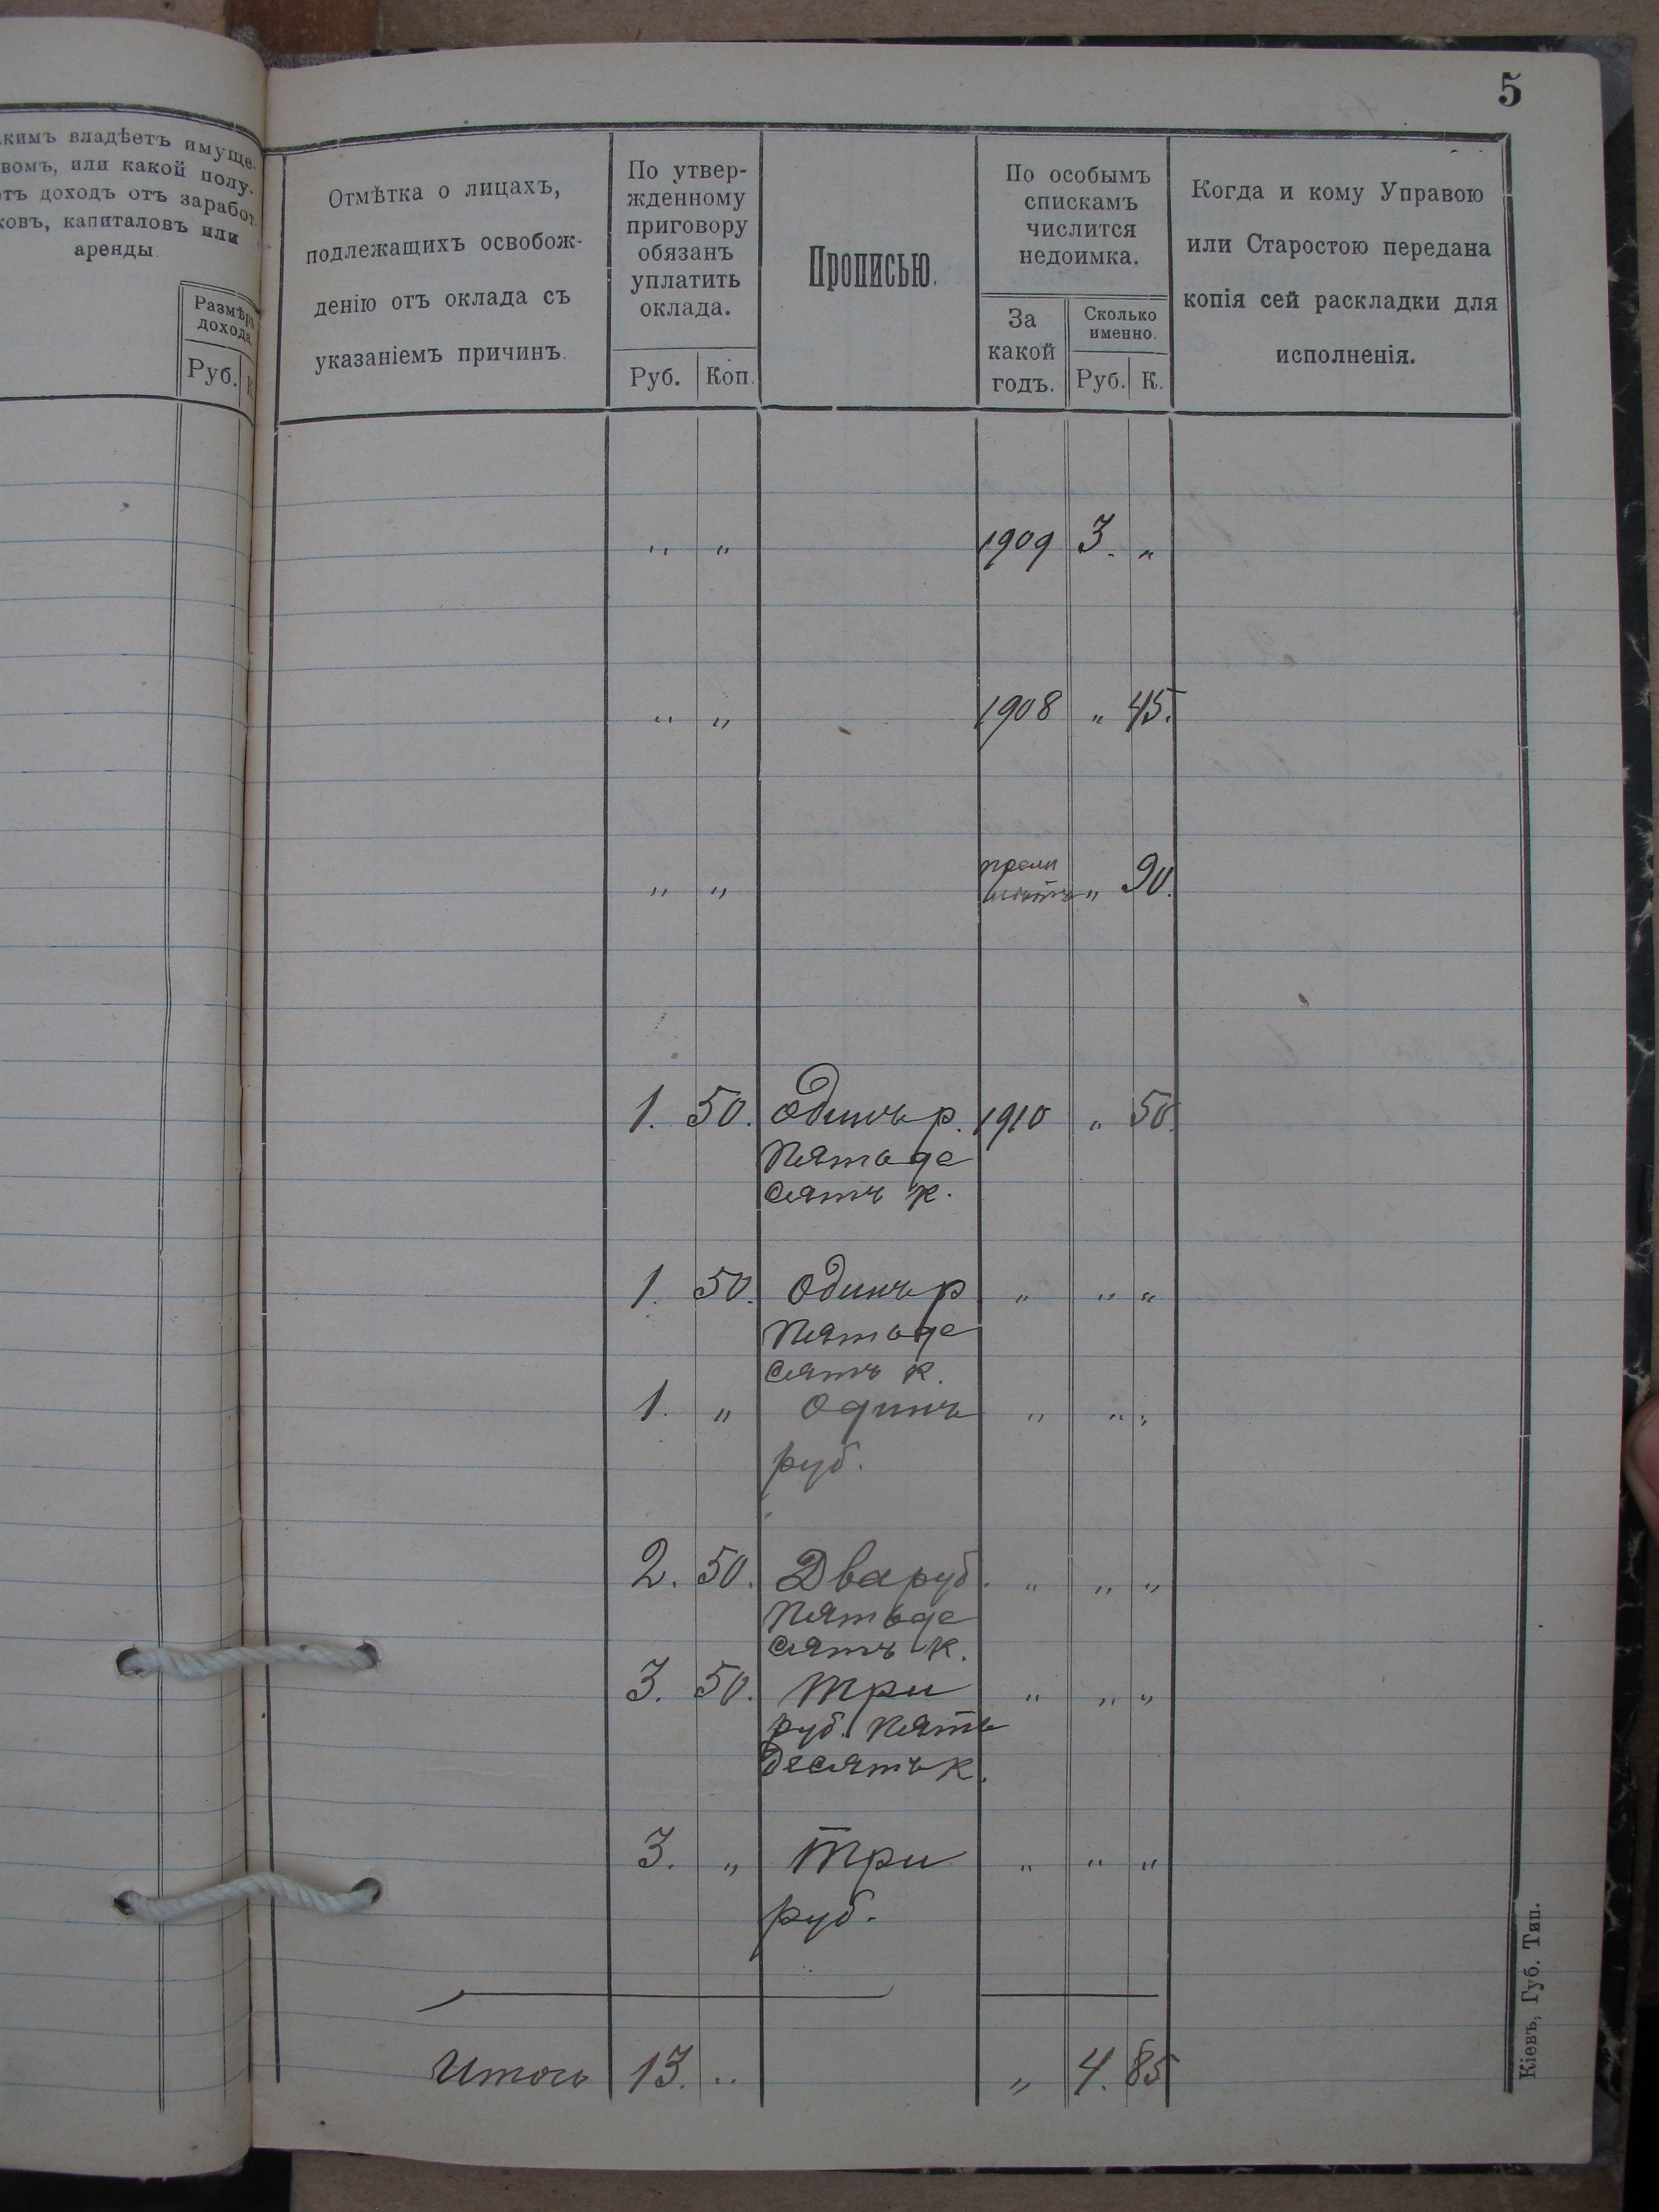 5
кимъ владѣетъ имуще-
вомъ, или какой полу-
отъ доходъ отъ заработ-
ковъ, капиталовъ или
аренды.
Размѣръ
дохода.
Руб. К
Отмѣтка о лицахъ,
подлежащихъ освобож-
денію отъ оклада съ
указаніемъ причинъ.
По утвер-
жденному
приговору
обязанъ
уплатить
оклада.
Руб. Коп.
Прописью.
По особымъ
спискамъ
числится
недоимка.
За
какой
годъ.
Сколько
именно.
Руб. К.
Когда и кому Управою
или Старостою передана
копія сей раскладки для
исполненія.
„ „ 1909 3. „
„ „ 1908 „ 45.
„ „ „ 90.
1. 50. Одинъ р. 1910 „ 50.
Пятьде
сятъ к.
1. 50. Одинъ р. „ „ „
Пятьде
сятъ к.
1. „ Одинъ „ „ „
руб.
2. 50. Два руб. „ „ „
Пятьде
сятъ к.
3. 50. Три „ „ „
руб. Пять
десятъ к.
3. „ Три „ „ „
руб.
Итого 13. „ „ 4. 85
Кіевъ, Губ. Тип.